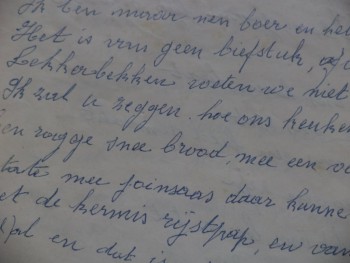 Ik ben maar nen boer en het
Het is van geen biefstuk, of
Lekkerbekken weten we niet
Ik zal u zeggen hoe ons keuken
en roggje snee brood, mee een
mee joinsaas daar kunne
et de kermis rijstpap, en van
en dat is